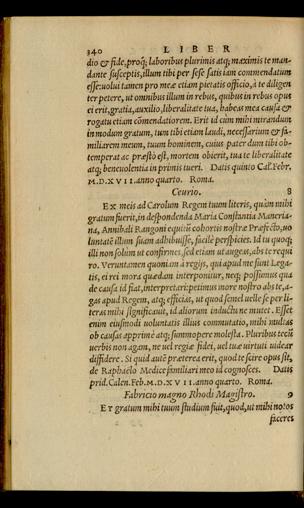 340 LIBER
dio & fide, proq́; laboribus plurimis atq; maximis te man-
dante susceptis, illum tibi per sese satis iam commendatum
esse: uolui tamen pro meæ etiam pietatis officio, à te diligen
ter petere, ut omnibus illum in rebus, quibus in rebus opus
ei erit, gratia, auxilio, liberalitate tua, habeas mea causa &
rogatu etiam cōmendatiorem. Erit id cùm mihi mirandum
in modum gratum, tum tibi etiam laudi, necessarium & fa-
miliarem meum, tuum hominem, cuius pater dum tibi ob-
temperat ac præstò est, mortem obierit, tua te liberalitate
atq; beneuolentia in primis tueri. Datis quinto Cal. Febr.
M.D.XVII. anno quarto. Roma.
Ceurio. 8
Ex meis ad Carolum Regem tuum literis, quàm mihi
gratum fuerit, in despondenda Maria Constantia Manceria-
na, Annibali Rangoni equitū cohortis nostræ Præfecto, uo
luntatē illum suam adhibuisse, facilè perspicies. Id tu quoq;
illi non solùm ut confirmes, sed etiam ut augeas, abs te requi
ro. Veruntamen quoniam à regijs, qui apud me sunt Lega-
tis, ei rei moræ quædam interponitur, neq; possumus qua
de causa id fiat, interpretari: petimus more nostro abs te, a-
gas apud Regem, atq; efficias, ut quod semel uelle se per li-
teras mihi significauit, id aliorum inductu ne mutet. Esset
enim eiusmodi uoluntatis illius commutatio, mihi multas
ob causas apprimè atq; summopere molesta. Pluribus tecū
uerbis non agam, ne uel regiæ fidei, uel tuæ uirtuti uidear
diffidere. Si quid autē præterea erit, quod te scire opus sit,
de Raphaëlo Medice familiari meo id cognosces. Datis
prid. Calen. Feb. M.D.XVII. anno quarto. Roma.
Fabricio magno Rhodi Magistro. 9
Et gratum mihi tuum studium fuit, quod, ut mihi notos
faceres